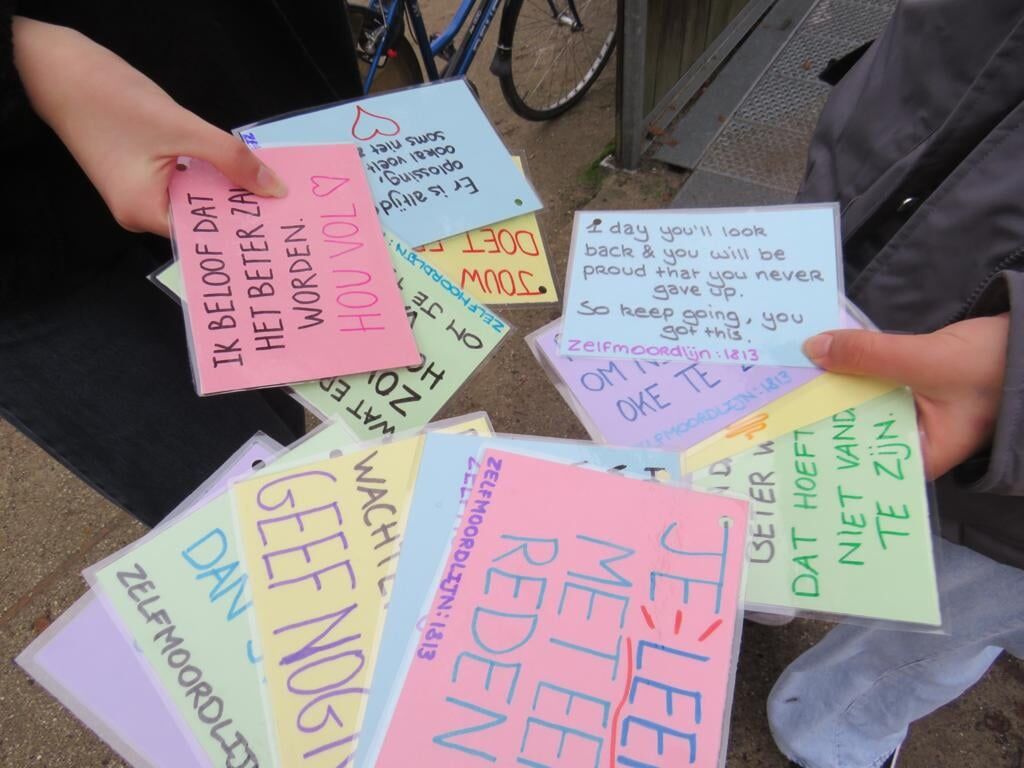 IK BELOOF DAT
HET BETER ZAL
WORDEN.
HOU VOL ♡
Er is altijd
oplossing,
ookal voelt
soms niet
JOUW
DOET
ZELFMOORDLIJN:
OM JE
WAT ER
1 day you'll look
back & you will be
proud that you never
gave up.
So keep going, you
got this.
zelfmoordlijn:1813
OM
OKE TE
ZELFMOORDLIJN:1813
BETER
DAT HOEFT
NIET
TE ZIJN.
DAN
ZELFMOORDLIJN
GEEF NOOIT
ZELFMOORDLIJN:1813
JE
MET EEN
REDEN